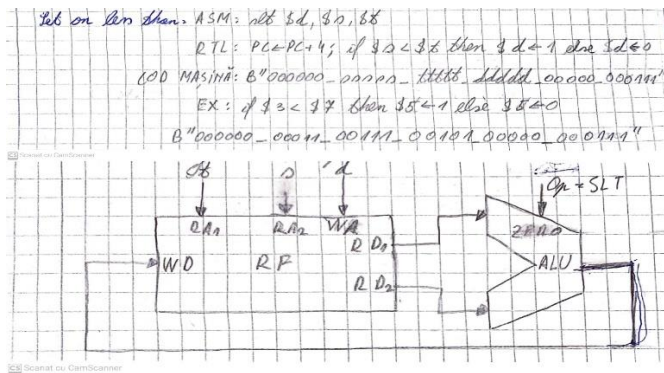 Set on less than: ASM: slt $d, $s, $t
RTL: PC←PC+4; if $s < $t then $d←1 else $d←0
COD MAȘINĂ: B"000000_sssss_ttttt_ddddd_00000_000111"
EX: if $3 < $7 then $5←1 else $5←0
B"000000_00011_00111_00101_00000_000111"
CS Scanat cu CamScanner
t s d Op = SLT
RA1 RA2 WA ZERO
RD1
WD RF ALU
RD2
CS Scanat cu CamScanner